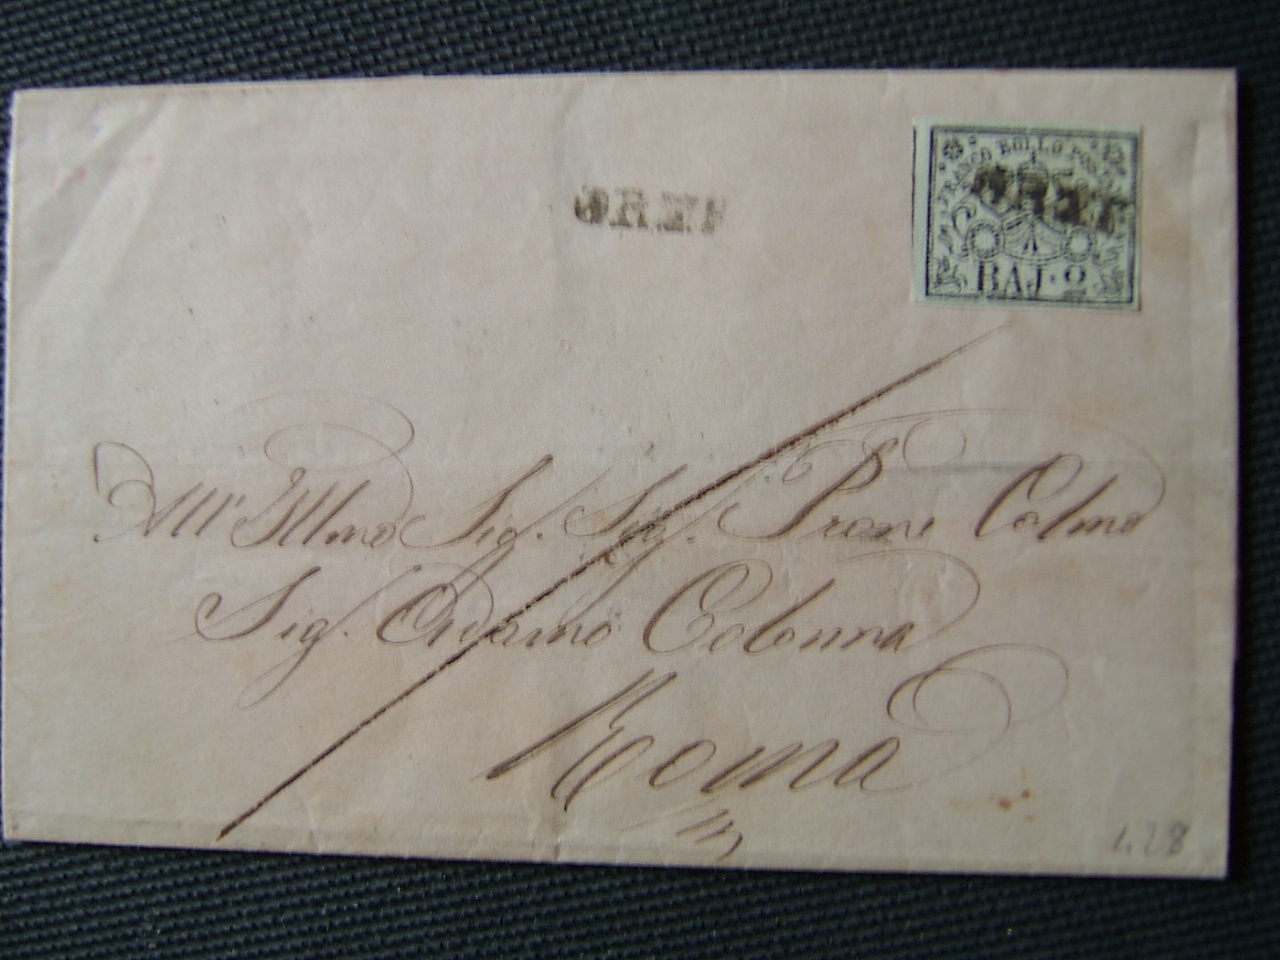 ORTE
FRANCO BOLLO POSTALE
ORTE
BAJ. 2
All' Illmo Sig. Sig. Prone Colmo
Sig. Colonna
Roma
1.28